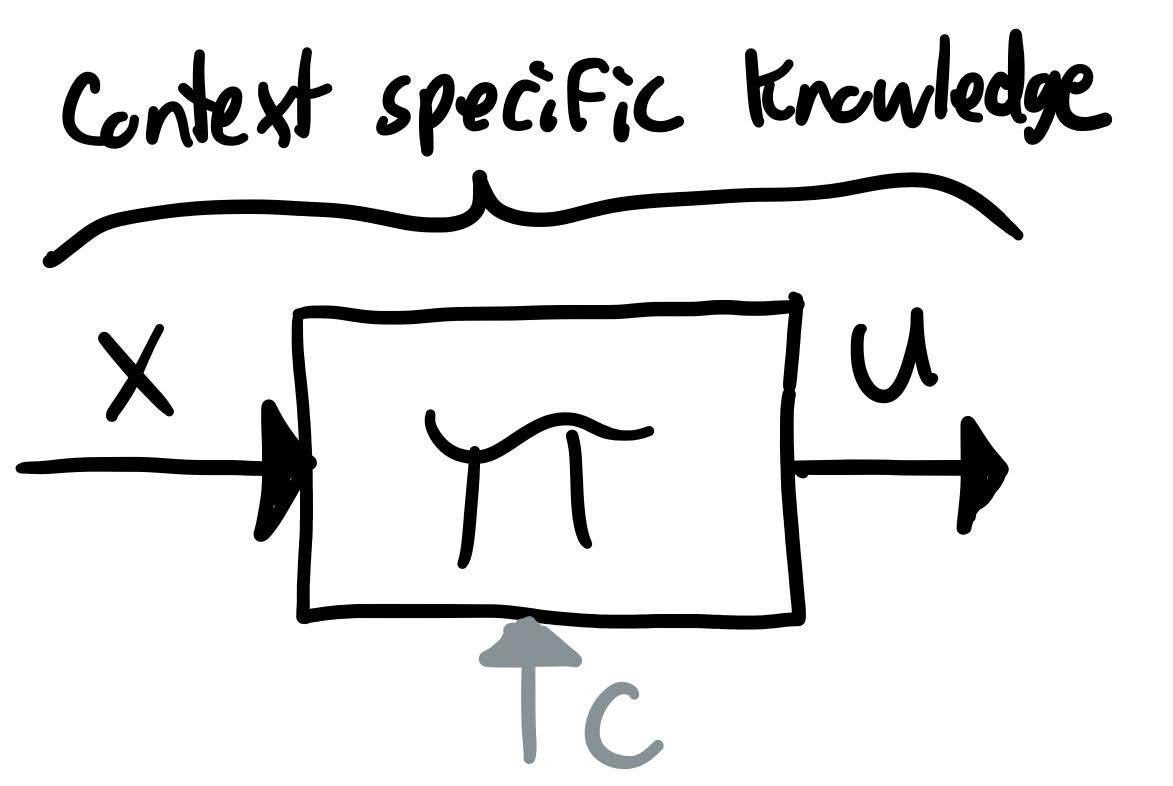 Context specific knowledge
X
U
π
C